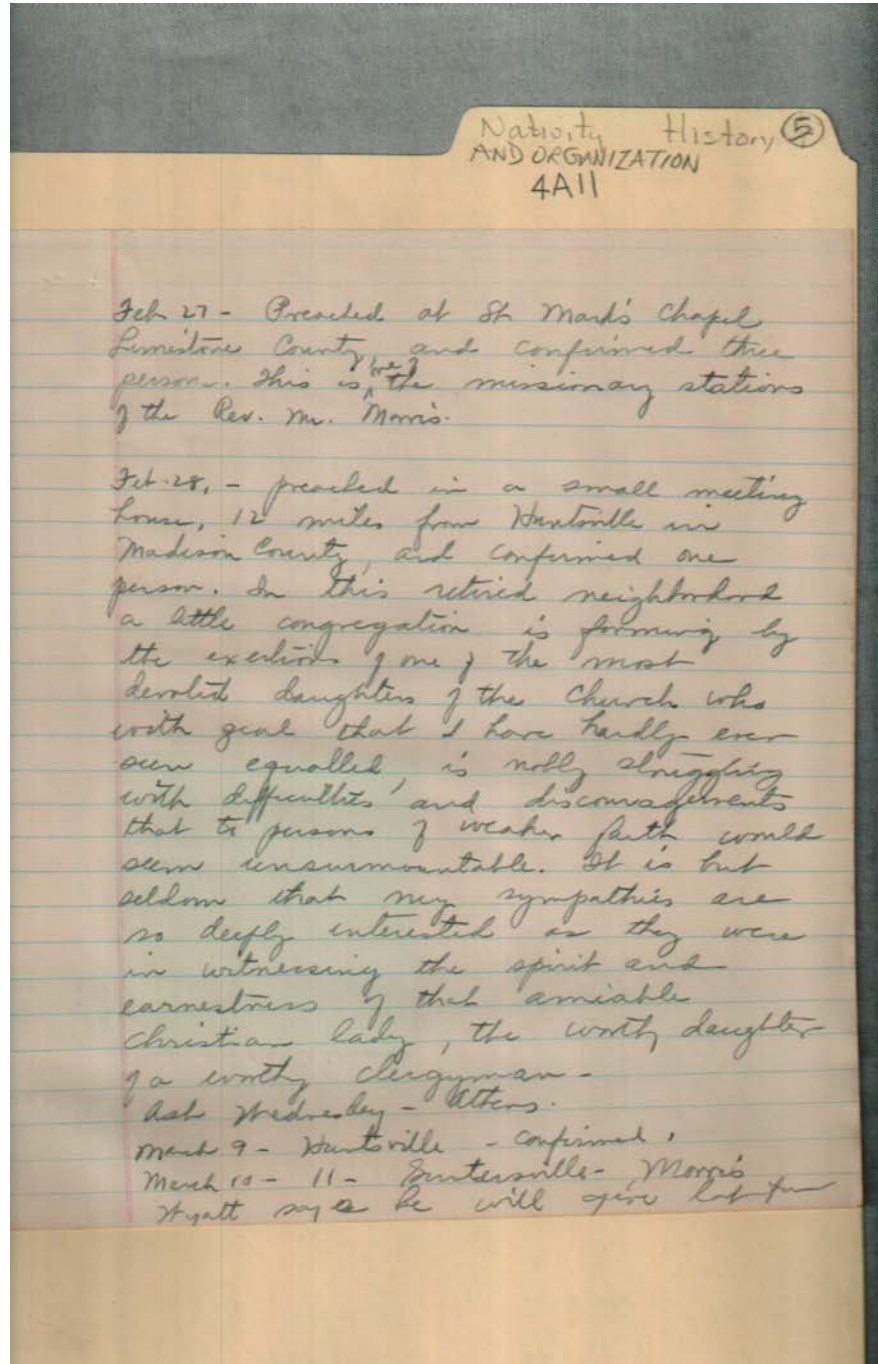 Nativity History 5
AND ORGANIZATION
4A11
Feb 27 - Preached at St Mark's Chapel
Limestone County, and confirmed three
person. This is one of the missionary stations
of the Rev. Mr. Morris.
Feb. 28, - preached in a small meeting
house, 12 miles from Huntsville in
Madison County, and confirmed one
person. In this retired neighborhood
a little congregation is forming by
the exertions of one of the most
devoted daughters of the Church who
with zeal that I have hardly ever
seen equalled, is nobly struggling
with difficulties and discouragements
that to persons of weaker faith would
seem unsurmountable. It is but
seldom that my sympathies are
so deeply interested as they were
in witnessing the spirit and
earnestness of that amiable
Christian lady, the worthy daughter
of a worthy clergyman -
Ash Wednesday - Athens.
March 9 - Huntsville - confirmed 1
March 10 - 11 - Guntersville - Morris
Wyatt says he will give lot for